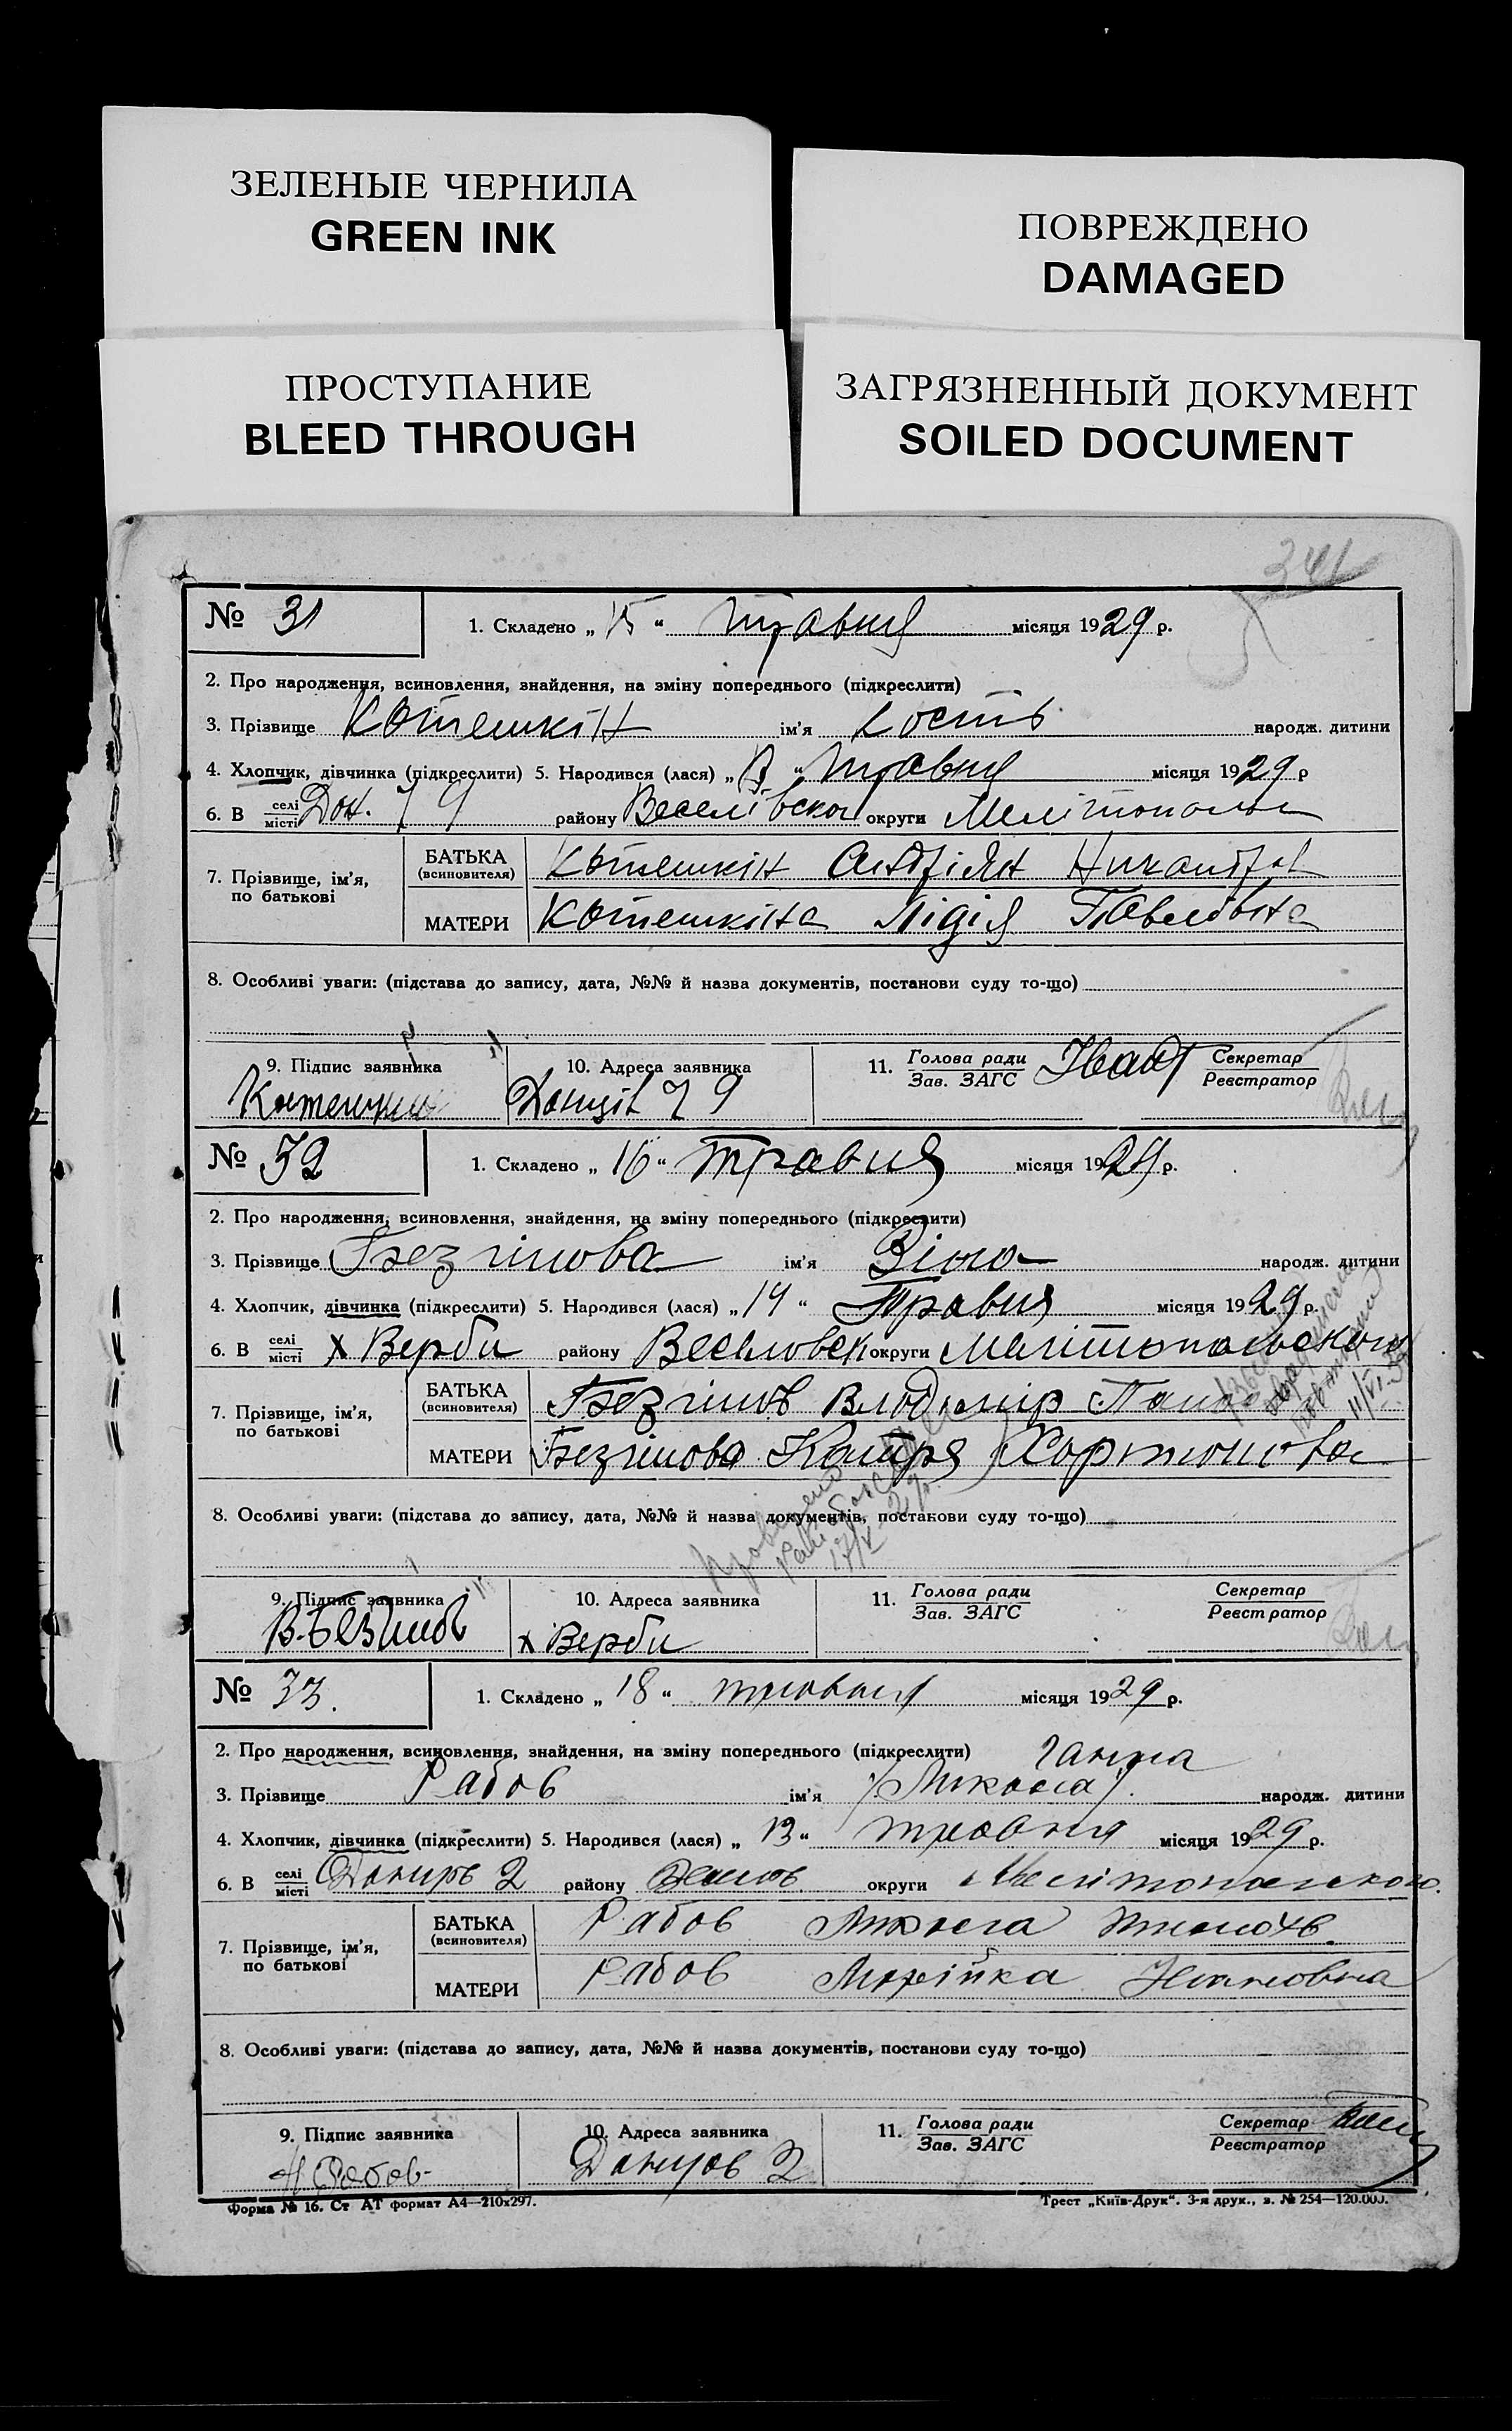 ЗЕЛЕНЫЕ ЧЕРНИЛА
GREEN INK
ПОВРЕЖДЕНО
DAMAGED
ПРОСТУПАНИЕ
BLEED THROUGH
ЗАГРЯЗНЕННЫЙ ДОКУМЕНТ
SOILED DOCUMENT
341
№ 31 1. Складено „ 15 “ травня місяця 1929 р.
2. Про народження, всиновлення, знайдення, на зміну попереднього (підкреслити)
3. Прізвище Котешкін ім'я Кость народж. дитини
4. Хлопчик, дівчинка (підкреслити) 5. Народився (лася) „ “ травня місяця 1929 р
6. В селі місті Дон. 9 району Веселівськог округи Мелітопольс
7. Прізвище, ім'я, по батькові
БАТЬКА (всиновителя) Котешкін Никандр
МАТЕРИ Котешкіна Лідія Павловна
8. Особливі уваги: (підстава до запису, дата, №№ й назва документів, постанови суду то-що)
9. Підпис заявника 10. Адреса заявника 11. Голова ради Зав. ЗАГС Секретар Реєстратор
Котешкин Донців 9
№ 32 1. Складено „ 16 “ травня місяця 1929 р.
2. Про народження, всиновлення, знайдення, на зміну попереднього (підкреслити)
3. Прізвище Безчинова ім'я Зіна народж. дитини
4. Хлопчик, дівчинка (підкреслити) 5. Народився (лася) „ 14 “ Травня місяця 1929 р.
6. В селі місті х Верби району Веселовськ округи Мелітопольского
7. Прізвище, ім'я, по батькові
БАТЬКА (всиновителя) Безчинов Влодимир
МАТЕРИ Безчинова Катря Харитонова
8. Особливі уваги: (підстава до запису, дата, №№ й назва документів, постанови суду то-що)
9. Підпис заявника 10. Адреса заявника 11. Голова ради Зав. ЗАГС Секретар Реєстратор
В. Безчинов х Верби
№ 33. 1. Складено „ 18 “ травня місяця 1929 р.
2. Про народження, всиновлення, знайдення, на зміну попереднього (підкреслити) Ганна
3. Прізвище Рабов ім'я Микола народж. дитини
4. Хлопчик, дівчинка (підкреслити) 5. Народився (лася) „ 13 “ травня місяця 1929 р.
6. В селі місті 2 району Веселов округи Мелітопольского.
7. Прізвище, ім'я, по батькові
БАТЬКА (всиновителя) Рабов Микола
МАТЕРИ Рабов Марійка Ивановна
8. Особливі уваги: (підстава до запису, дата, №№ й назва документів, постанови суду то-що)
9. Підпис заявника 10. Адреса заявника 11. Голова ради Зав. ЗАГС Секретар Реєстратор
Н Рабов Донцов 2
Форма № 16. Ст АТ формат А4—210x297. Трест „Київ-Друк“. 3-я друк., з. № 254—120.000.